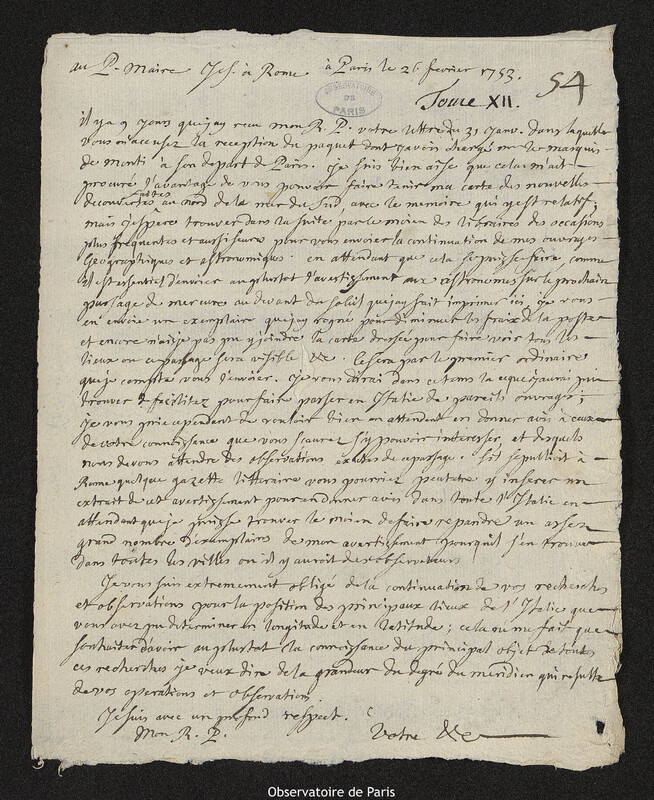 au P. Maire Jes. à Rome à Paris le 26 fevrier 1753.
54
OBSERVATOIRE DE PARIS
Tome XII.
il y a 9 jours que j'ay receu mon R. P. votre lettre du 31 janv. dans laquelle
vous m'accusez la reception du paquet dont j'avois chargé mr le marquis
de monti à son depart de Paris. Je suis bien aise que cela m'ait
procuré l'avantage de vous pouvoir faire tenir ma carte des nouvelles
decouvertes faites au nord de la mer du Sud, avec le memoire qui y est relatif;
mais j'espere trouver dans la suite par le moien des libraires des occasions
plus frequentes et aussi seures pour vous envoier la continuation de mes ouvrages
Geographiques et astronomiques. en attendant que cela se puisse faire, comme
il est essentiel d'envoier au plustot l'avertissement aux astronomes sur le prochain
passage de mercure au devant du soleil que j'ay fait imprimer ici, je vous
en envoie un exemplaire que j'ay rogné pour diminuer les fraix de la poste
et encore n'ai je pas pu y joindre la carte dressée pour faire voir tous les
lieux ou ce passage sera visible &c. Ce sera par le premier ordinaire
que je compte vous l'envoier. Je vous dirai dans ce tems la ce que j'aurai pu
trouver de facilitez pour faire passer en Italie de pareils ouvrages;
je vous prie cependant de vouloir bien en attendant en donner avis à ceux
de votre connoissance que vous scaurez s'y pouvoir interesser, et desquels
nous devons attendre des observations exactes de ce passage. S'il se publioit à
Rome quelque gazette litteraire vous pourriez peutetre y inserer un
extrait de cet avertissement pour en donner avis dans toute l'Italie en
attendant que je puisse trouver le moien de faire repandre un assez
grand nombre d'exemplaires de mon avertissement pour qu'il s'en trouve
dans toutes les villes ou il y auroit des observateurs
Je vous suis extremement obligé de la continuation de vos recherches
et observations pour la position des principaux lieux de l'Italie que
vous avez pu determiner en longitude et en latitude; cela ne me fait que
souhaiter d'avoir au plustot la connoissance du principal objet de toutes
ces recherches je veux dire de la grandeur du degré du meridien qui resulte
de vos operations et observations.
Je suis avec un profond respect.
Mon R. P. Votre &c
Observatoire de Paris